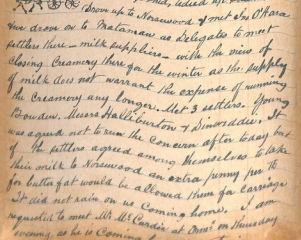 Drove up to Norsewood & met Jno O'Hara
& we drove on to Matamau as delegates to meet
settlers there - milk suppliers - with the view of
closing Creamery there for the winter as the supply
of milk does not warrant the expense of running
the Creamery any longer. Met 3 settlers. Young
Bowden, Messrs Halliburton & It
was agreed not to run the concern after today but
if the settlers agreed among themselves to take
their milk to Norsewood an extra penny per lb
for butter fat would be allowed them for carriage
It did not rain on us coming home. I am
requested to meet Mr McCardle at on Thursday
evening, as he is coming